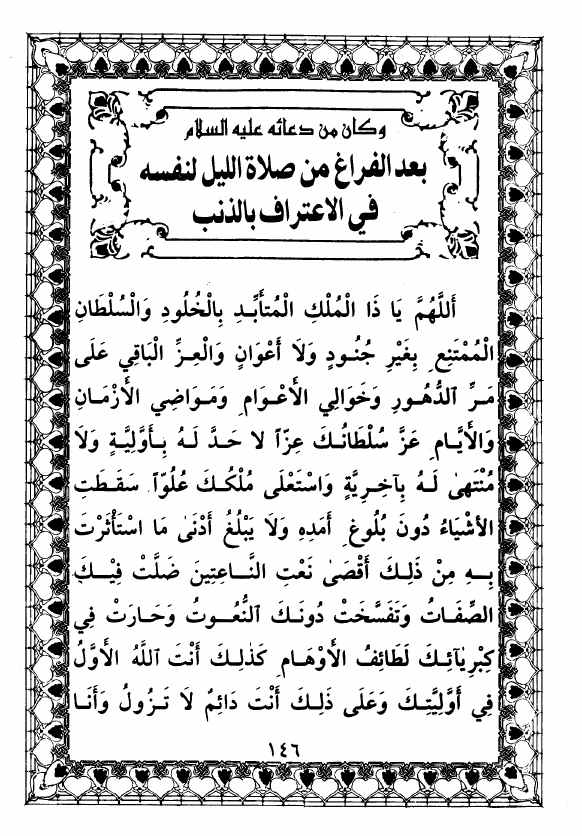 وكان من دعائه عليه السلام
بعد الفراغ من صلاة الليل لنفسه
في الاعتراف بالذنب
أَللَّهُمَّ يَا ذَا الْمُلْكِ الْمُتَأَبِّدِ بِالْخُلُودِ وَالْسُلْطَانِ
الْمُمْتَنِعِ بِغَيْرِ جُنُودٍ وَلَا أَعْوَانٍ وَالْعِزِّ الْبَاقِي عَلَى
مَرِّ الدُّهُورِ وَخَوَالِي الْأَعْوَامِ وَمَوَاضِي الْأَزْمَانِ
وَالْأَيَّامِ عَزَّ سُلْطَانُكَ عِزّاً لا حَدَّ لَهُ بِأَوَّلِيَّةٍ وَلَا
مُنْتَهىٰ لَهُ بِآخِرِيَّةٍ وَاسْتَعْلَى مُلْكُكَ عُلُوّاً سَقَطَتِ
الْأَشْيَاءُ دُونَ بُلُوغِ أَمَدِهِ وَلَا يَبْلُغُ أَدْنَىٰ مَا اسْتَأْثَرْتَ
بِهِ مِنْ ذَلِكَ أَقْصَىٰ نَعْتِ النَّاعِتِينَ ضَلَّتْ فِيْكَ
الصِّفَاتُ وَتَفَسَّخَتْ دُونَكَ النُّعُوتُ وَحَارَتْ فِي
كِبْرِيَائِكَ لَطَائِفُ الْأَوْهَامِ كَذٰلِكَ أَنْتَ اللَّهُ الْأَوَّلُ
فِي أَوَّلِيَّتِكَ وَعَلَى ذَلِكَ أَنْتَ دَائِمٌ لَا تَزُولُ وَأَنَا
١٤٦